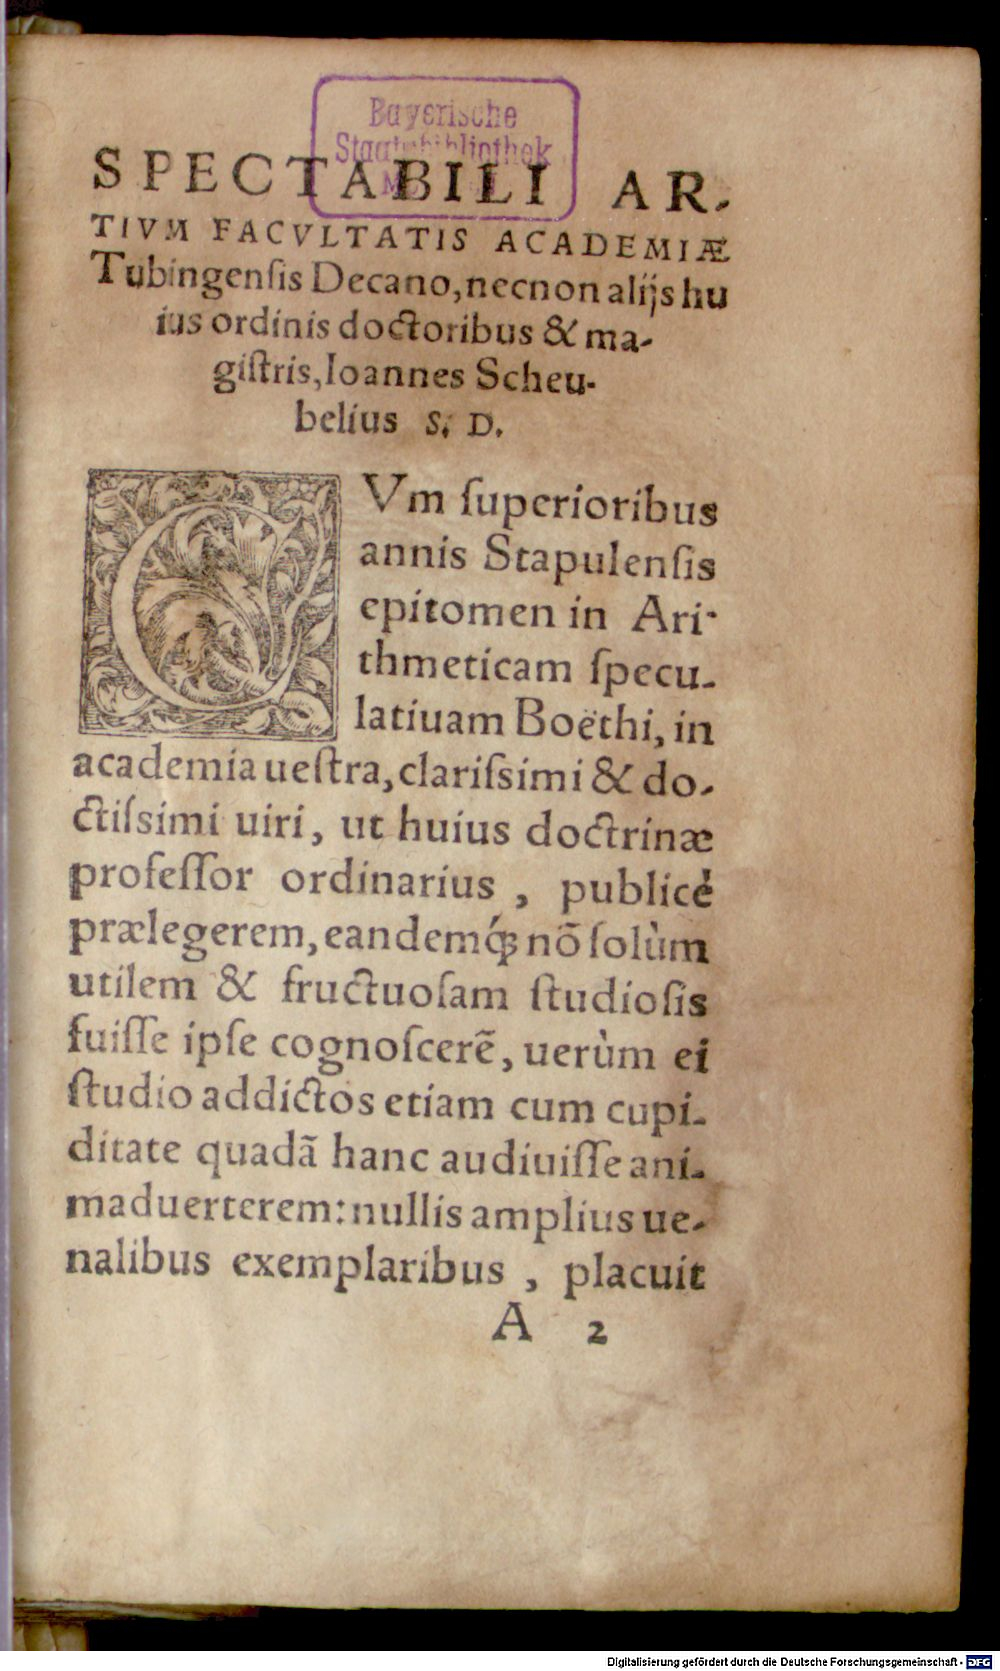 Bayerische
Staatsbibliothek
SPECTABILI AR-
TIVM FACVLTATIS ACADEMIÆ
Tubingenſis Decano, necnon alijs hu
ius ordinis doctoribus & ma-
giſtris, Ioannes Scheu-
belius S. D.
CVm ſuperioribus
annis Stapulenſis
epitomen in Ari-
thmeticam ſpecu-
latiuam Boëthi, in
academia ueſtra, clariſsimi & do-
ctiſsimi uiri, ut huius doctrinæ
profeſſor ordinarius, publicè
prælegerem, eandemq́ꝫ nõ ſolùm
utilem & fructuoſam ſtudioſis
fuiſſe ipſe cognoſcerẽ, uerùm ei
ſtudio addictos etiam cum cupi-
ditate quadã hanc audiuiſſe ani-
maduerterem: nullis amplius ue-
nalibus exemplaribus, placuit
A 2
Digitalisierung gefördert durch die Deutsche Forschungsgemeinschaft - DFG